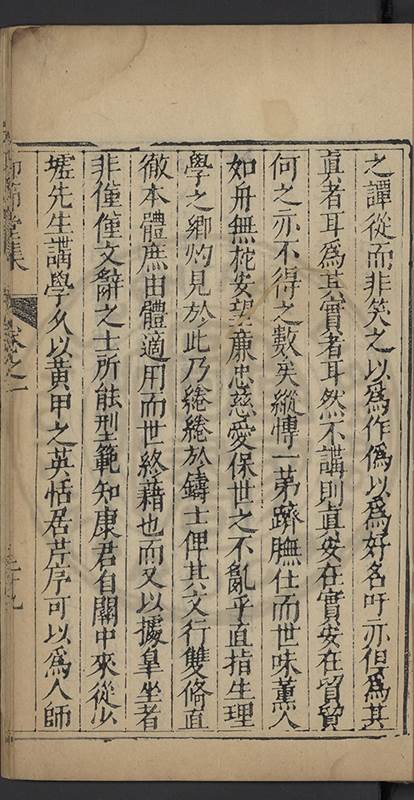 之譚從而非笑之以為作偽以為好名吁亦但為其
真者耳為其實者耳然不講則真安在實安在貿貿
何之亦不得之數矣縱博一第躋膴仕而世味薰人
如舟無柁安望廉忠慈愛保世之不亂乎直指生理
學之鄉灼見於此乃綣綣於鑄士俾其文行雙修直
徹本體庶由體適用而世終藉也而又以擁臯坐者
非僅僅文辭之士所能型範知康君自關中來從少
墟先生講學久以黃甲之英恬居芹序可以為人師
集
卷之二